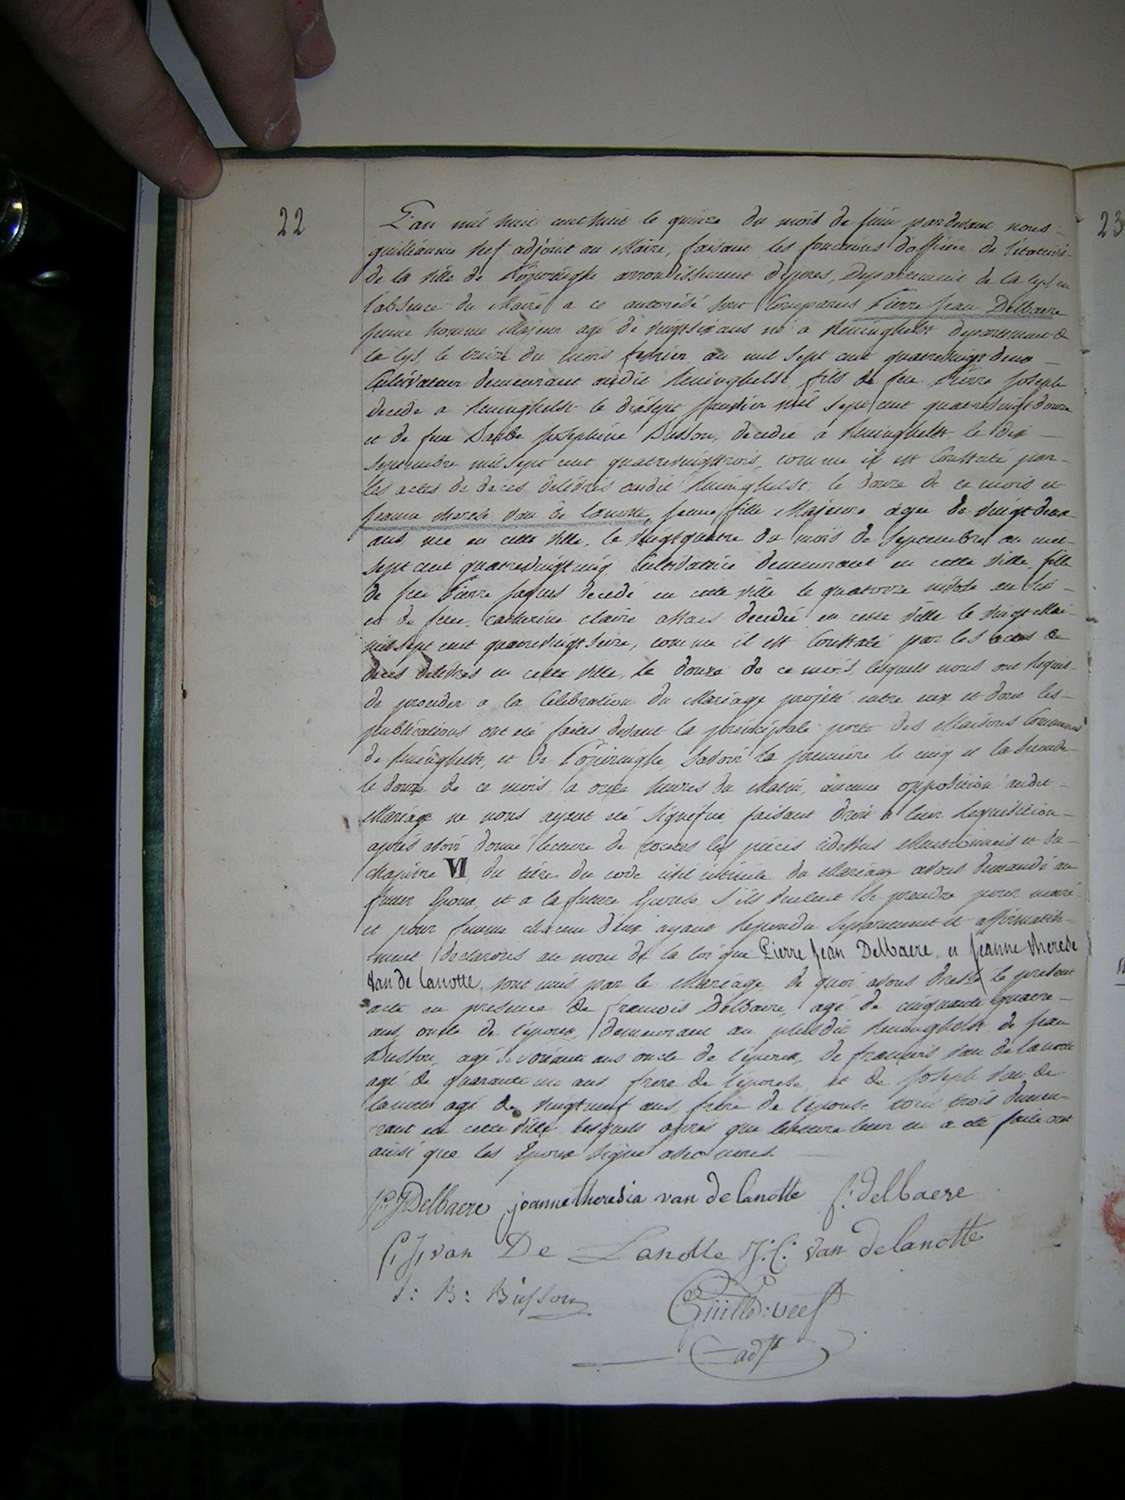 22
23
L'an mil huit cent huit le quinze du mois de juin pardevant nous
guillaume Vef adjoint au Maire, faisant les fonctions d'officier de l'etat civil
de la ville de Poperinghe arrondissement d'ypres, Departement de la Lys en
l'absence du Maire a ce autorisé sont Comparus Pierre Jean Delbaere
jeune homme Majeur agé de vingt six ans né a Reninghelst departement de
la Lys, le treize du mois fevrier an mil sept cent quatrevingt deux
Cultivateur demeurant audit Reninghelst, fils de feu Pierre Joseph
decede a Reninghelst le dixsept janvier mil sept cent quatrevingt douze
et de feue Barbe Josephine Busson, decedée a Reninghelst le dix
septembre mil sept cent quatrevingt trois, comme il est Constaté par
les actes de deces delivrés audit Reninghelst le douze de ce mois et
jeanne therese Van de lanotte, jeune fille Majeure agée de vingt deux
ans née en cette ville, le vingt quatre du mois de septembre an mil
sept cent quatrevingt cinq Cultivatrice demeurant en cette ville, fille
de feu Pierre Jaques decedé en cette ville le quatorze nivose an six
et de feue Catherine Claire decedée en cette ville le vingt Mai
mil sept cent quatrevingt seize, comme il est Constaté par les actes de
deces delivrés en cette ville, le douze de ce mois, lesquels nous ont Requis
de proceder a la Celebration du Mariage projeté entre eux et dont les
publications ont été faites devant la principale porte des Maisons Communes
de Reninghelst, et de Poperinghe, Savoir la premiere le cinq et la Seconde
le douze de ce mois, a onze heures du Matin, aucune opposition audit
Mariage ne nous ayant été Signifiée faisant droit a leur Requisition
après avoir donné lecture de toutes les pièces cidessus Mentionnees et du
chapitre VI, du titre du code civil intitulé du Mariage avons demandé au
futur Epoux, et a la future Epouse, S'ils veulent Se prendre pour mari
et pour femme chacun d'eux ayant Repondu Separement et affirmative
ment declarons au nom de la loi que Pierre Jean Delbaere, et Jeanne therese
Van de lanotte, sont unis par le Mariage, de quoi avons dressé le present
acte en presence de francois Delbaere, agé de cinquante quatre
ans, oncle de l'epoux, demeurant au plusdit Reninghelst de Jean
Busson, agé de ans oncle de l'epoux, de françois Van de lanotte
agé de quarante un ans, frere de l'epouse, et de Joseph Van de
lanotte agé de vingt neuf ans, frere de l'epouse tous trois demeu
rant en cette ville lesquels après que lecture leur en a été faite ont
ainsi que les Epoux Signé avec nous.
P: J: Delbaere joanna theresia van de lanotte f: delbaere
Van De Lanotte J: C: van de lanotte
B: Busson
Guille: Veef
adjt